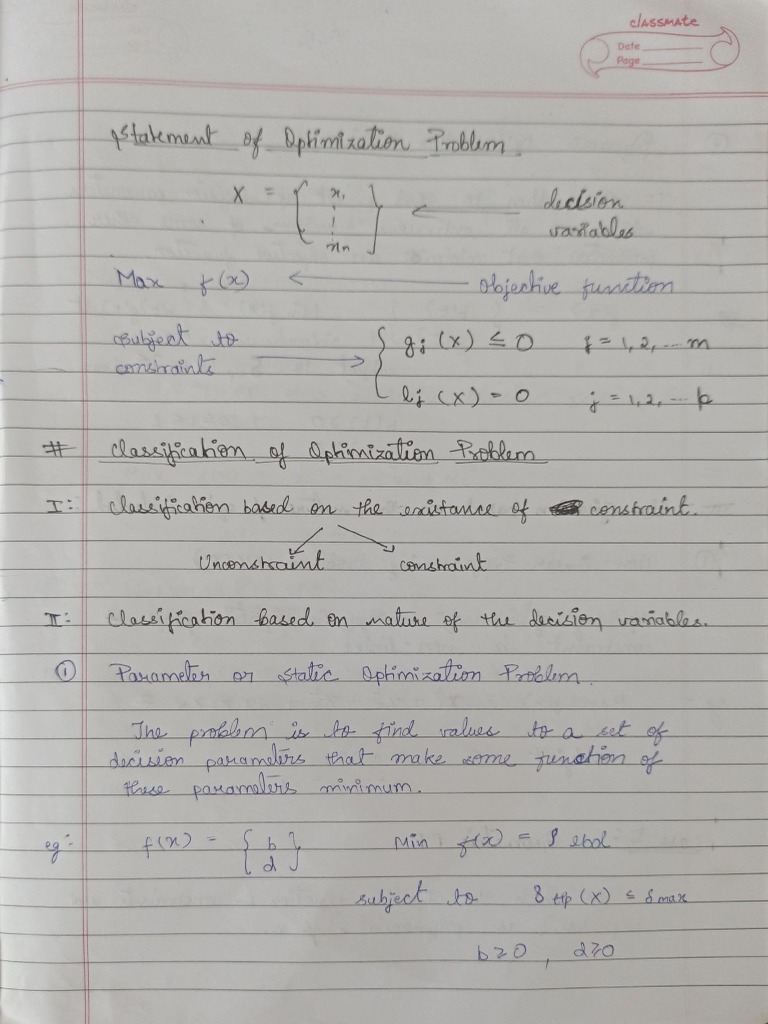 classmate
Date
Page
Statement of Optimization Problem.
X = { x1 ⋮ xn } ← decision variables
Max f(x) ← objective function
subject to constraints → { gj (x) ≤ 0 j = 1, 2, ... m
lj (x) = 0 j = 1, 2, ... p
# Classification of Optimization Problem
I: Classification based on the existance of constraint.
Unconstraint constraint
II: Classification based on nature of the decision variables.
① Parameter or Static Optimization Problem.
The problem is to find values to a set of
decision parameters that make some function of
these parameters minimum.
eg: f(x) = { b d } Min f(x) = ρ lbd
subject to δ tip (X) ≤ δ max
b ≥ 0 , d ≥ 0